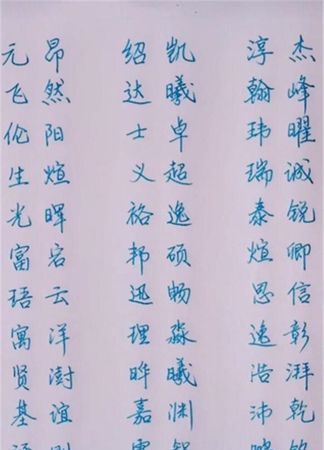 元昂 绍凯 淳杰
飞然 达曦 翰峰
伦阳 士卓 玮曜
生煊 义超 瑞诚
光晖 裕逸 泰锐
富容 邦硕 煊卿
云 迅畅 思信
寓洋 理淼 逸彰
贤澍 晔曦 浩湃
基谊 嘉渊 沛乾